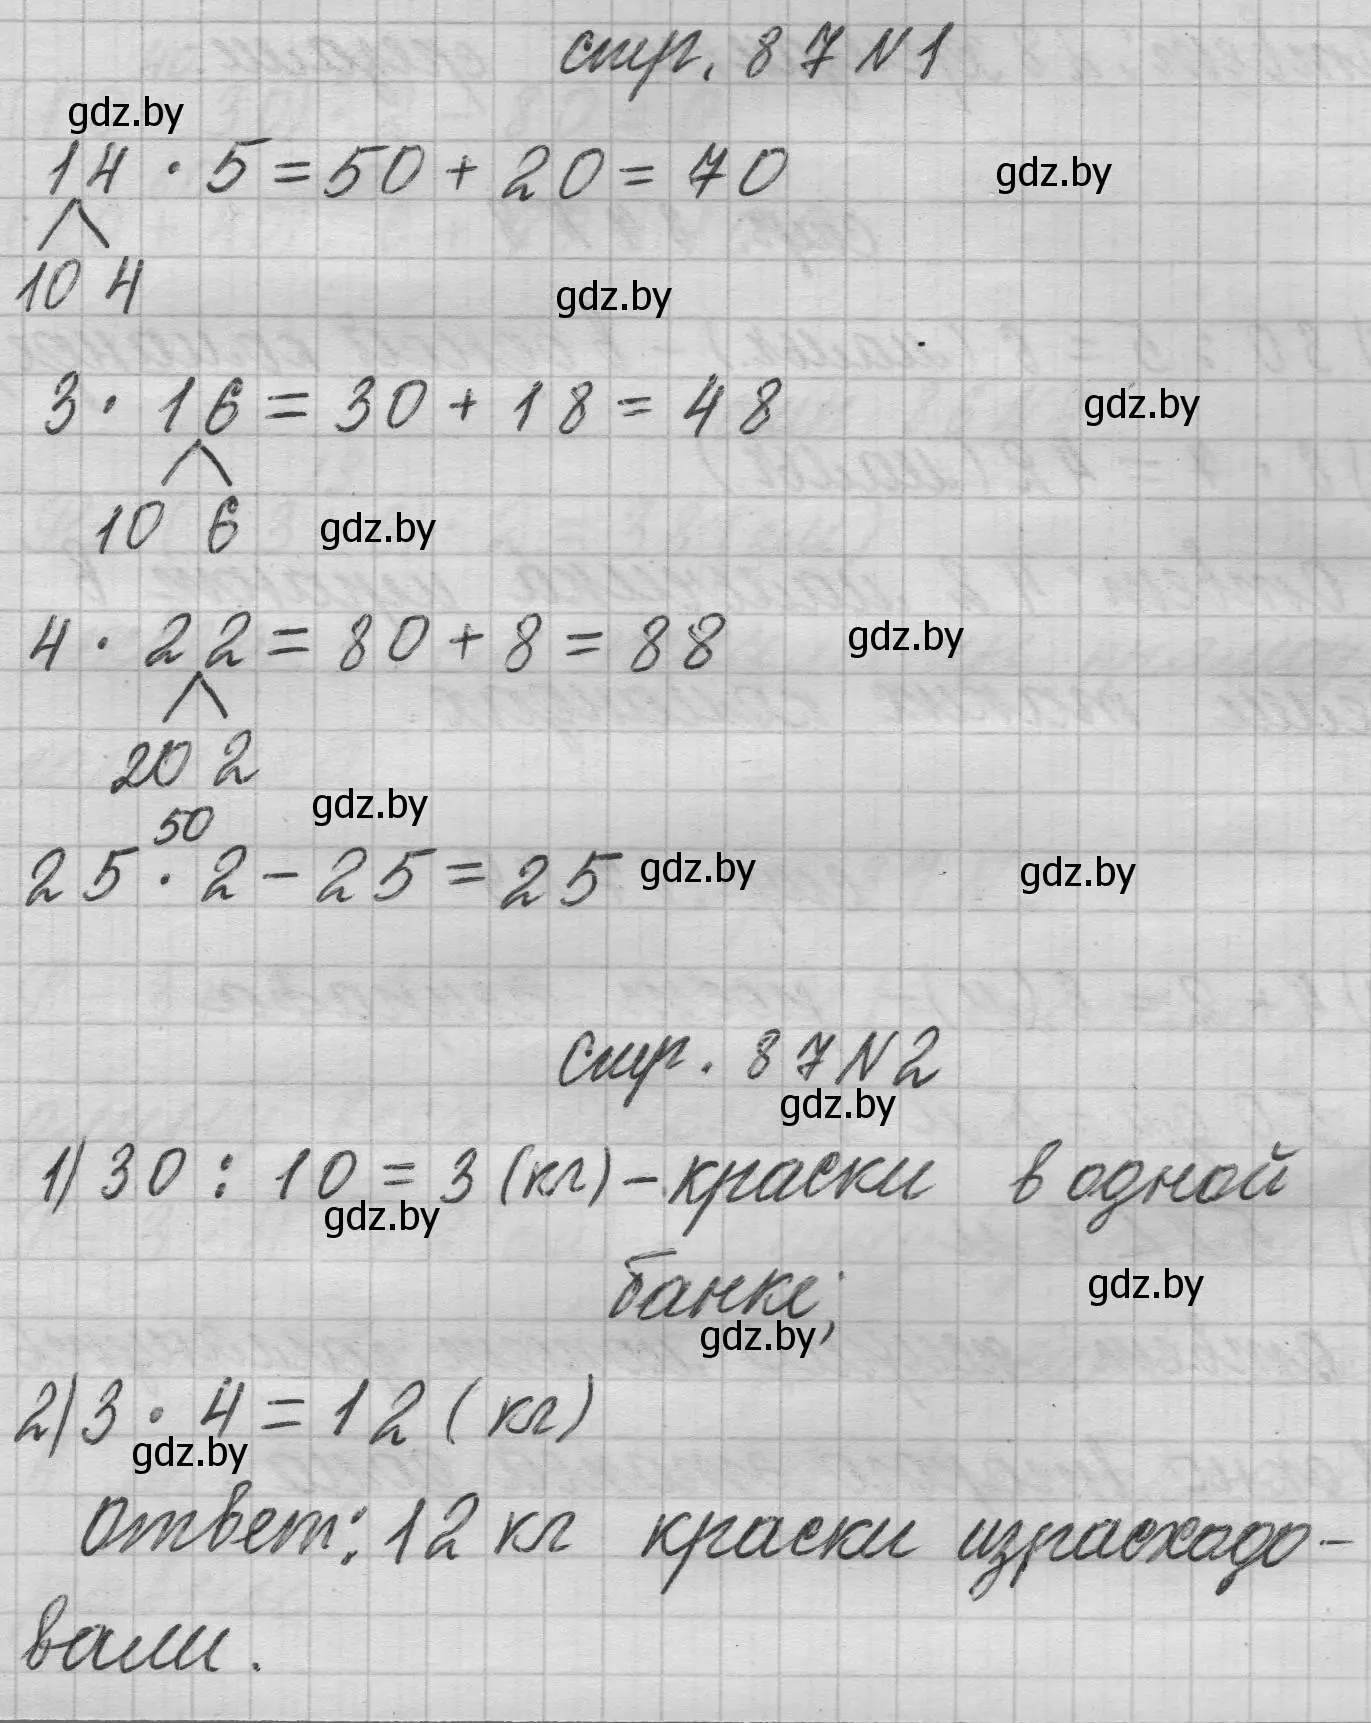 стр. 87 N 1
gdz.by
14 · 5 = 50 + 20 = 70
gdz.by
10 4
gdz.by
3 · 16 = 30 + 18 = 48
gdz.by
10 6
gdz.by
4 · 22 = 80 + 8 = 88
gdz.by
20 2
gdz.by
50
25 · 2 - 25 = 25
gdz.by
gdz.by
стр. 87 N 2
gdz.by
1) 30 : 10 = 3 (кг) - краски в одной
gdz.by
банке;
gdz.by
gdz.by
2) 3 · 4 = 12 (кг)
gdz.by
Ответ: 12 кг краски израсходо-
вали.